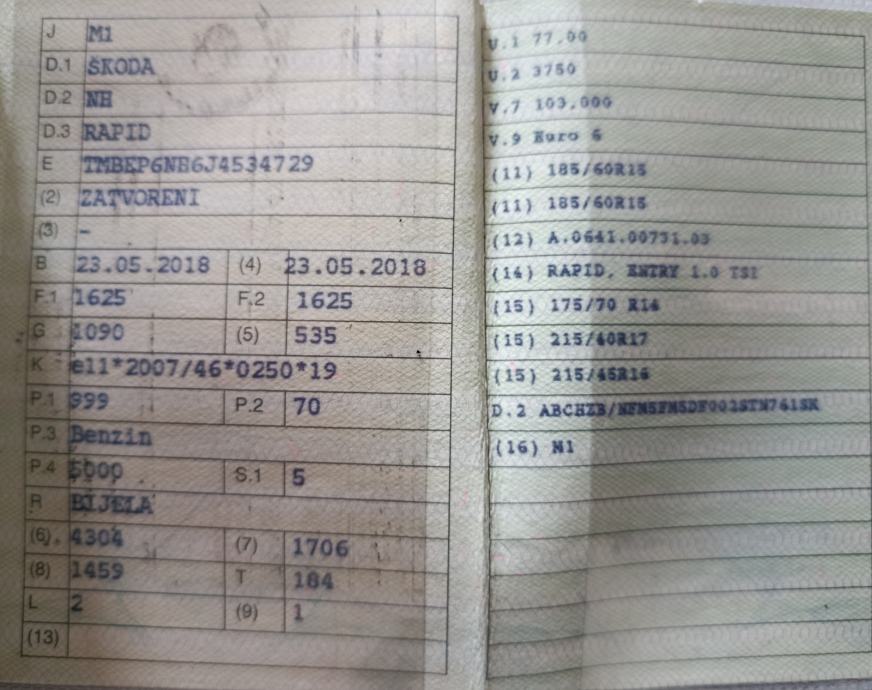 J M1
D.1 ŠKODA
D.2 NH
D.3 RAPID
E TMBEP6NH6J4534729
(2) ZATVORENI
(3) -
B 23.05.2018 (4) 23.05.2018
F.1 1625 F.2 1625
G 1090 (5) 535
K e11*2007/46*0250*19
P.1 999 P.2 70
P.3 Benzin
P.4 5000 S.1 5
R BIJELA
(6) 4304 (7) 1706
(8) 1459 T 184
L 2 (9) 1
(13)
U.1 77.00
U.2 3750
V.7 103,000
V.9 Euro 6
(11) 185/60R15
(11) 185/60R15
(12) A.0641.00731.03
(14) RAPID, ENTRY 1.0 TSI
(15) 175/70 R14
(15) 215/40R17
(15) 215/45R16
D.2
(16) M1